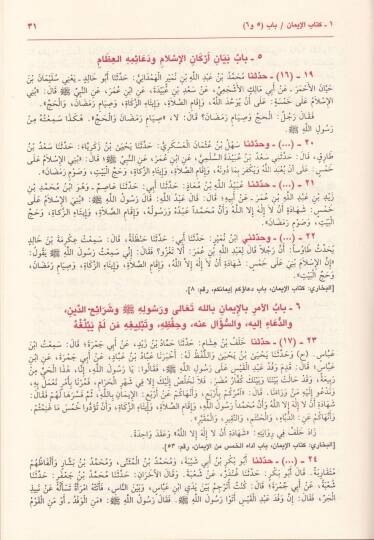 ١ - كتاب الإيمان / باب (٥ و٦) ٣١
٥ - بابُ بَيَانِ أَرْكَانِ الإِسْلَامِ وَدَعَائِمِهِ العِظَامِ
١٩ - (١٦) - حدثنا مُحَمَّدُ بْنُ عَبْدِ اللَّهِ بْنِ نُمَيْرٍ الهَمْدَانِيُّ: حَدَّثَنَا أَبُو خَالِدٍ - يَعْنِي سُلَيْمَانَ بْنَ
حَيَّانَ الأَحْمَرَ - عَنْ أَبِي مَالِكٍ الأَشْجَعِيِّ، عَنْ سَعْدِ بْنِ عُبَيْدَةَ، عَنِ ابْنِ عُمَرَ، عَنِ النَّبِيِّ ﷺ قَالَ: «بُنِيَ
الإِسْلَامُ عَلَى خَمْسَةٍ: عَلَى أَنْ يُوَحَّدَ اللَّهُ، وَإِقَامِ الصَّلَاةِ، وَإِيتَاءِ الزَّكَاةِ، وَصِيَامِ رَمَضَانَ، وَالحَجِّ».
فَقَالَ رَجُلٌ: الحَجِّ وَصِيَامِ رَمَضَانَ؟ قَالَ: لَا، «صِيَامِ رَمَضَانَ وَالحَجِّ». هَكَذَا سَمِعْتُهُ مِنْ
رَسُولِ اللَّهِ ﷺ.
٢٠ - (...) - وحدثنا سَهْلُ بْنُ عُثْمَانَ العَسْكَرِيُّ: حَدَّثَنَا يَحْيَى بْنُ زَكَرِيَّاءَ: حَدَّثَنَا سَعْدُ بْنُ
طَارِقٍ، قَالَ: حَدَّثَنِي سَعْدُ بْنُ عُبَيْدَةَ السُّلَمِيُّ، عَنِ ابْنِ عُمَرَ، عَنِ النَّبِيِّ ﷺ قَالَ: «بُنِيَ الإِسْلَامُ عَلَى
خَمْسٍ: عَلَى أَنْ يُعْبَدَ اللَّهُ وَيُكْفَرَ بِمَا دُونَهُ، وَإِقَامِ الصَّلَاةِ، وَإِيتَاءِ الزَّكَاةِ، وَحَجِّ البَيْتِ، وَصَوْمِ رَمَضَانَ».
٢١ - (...) - حدثنا عُبَيْدُ اللَّهِ بْنُ مُعَاذٍ: حَدَّثَنَا أَبِي: حَدَّثَنَا عَاصِمٌ - وَهُوَ ابْنُ مُحَمَّدِ بْنِ
زَيْدِ بْنِ عَبْدِ اللَّهِ بْنِ عُمَرَ - عَنْ أَبِيهِ؛ قَالَ: قَالَ عَبْدُ اللَّهِ: قَالَ رَسُولُ اللَّهِ ﷺ: «بُنِيَ الإِسْلَامُ عَلَى
خَمْسٍ: شَهَادَةِ أَنْ لَا إِلَهَ إِلَّا اللَّهُ وَأَنَّ مُحَمَّداً عَبْدُهُ وَرَسُولُهُ، وَإِقَامِ الصَّلَاةِ، وَإِيتَاءِ الزَّكَاةِ، وَحَجِّ
البَيْتِ، وَصَوْمِ رَمَضَانَ».
٢٢ - (...) - وحدثني ابْنُ نُمَيْرٍ: حَدَّثَنَا أَبِي: حَدَّثَنَا حَنْظَلَةُ، قَالَ: سَمِعْتُ عِكْرِمَةَ بْنَ خَالِدٍ
يُحَدِّثُ طَاوُساً: أَنَّ رَجُلاً قَالَ لِعَبْدِ اللَّهِ بْنِ عُمَرَ: أَلَا تَغْزُو؟ فَقَالَ: إِنِّي سَمِعْتُ رَسُولَ اللَّهِ ﷺ يَقُولُ:
«إِنَّ الإِسْلَامَ بُنِيَ عَلَى خَمْسٍ: شَهَادَةِ أَنْ لَا إِلَهَ إِلَّا اللَّهُ، وَإِقَامِ الصَّلَاةِ، وَإِيتَاءِ الزَّكَاةِ، وَصِيَامِ رَمَضَانَ،
وَحَجِّ البَيْتِ».
[البخاري: كتاب الإيمان، باب دعاؤكم إيمانكم، رقم: ٨].
٦ - بابُ الأَمْرِ بِالإِيمَانِ بِاللهِ تَعَالَى وَرَسُولِهِ ﷺ وَشَرَائِعِ الدِّينِ،
وَالدُّعَاءِ إِلَيْهِ، وَالسُّؤَالِ عَنْهُ، وَحِفْظِهِ، وَتَبْلِيغِهِ مَنْ لَمْ يَبْلُغْهُ
٢٣ - (١٧) - حدثنا خَلَفُ بْنُ هِشَامٍ: حَدَّثَنَا حَمَّادُ بْنُ زَيْدٍ، عَنْ أَبِي جَمْرَةَ؛ قَالَ: سَمِعْتُ ابْنَ
عَبَّاسٍ. (ح) وَحَدَّثَنَا يَحْيَى بْنُ يَحْيَى وَاللَّفْظُ لَهُ: أَخْبَرَنَا عَبَّادُ بْنُ عَبَّادٍ، عَنْ أَبِي جَمْرَةَ، عَنِ ابْنِ
عَبَّاسٍ، قَالَ: قَدِمَ وَفْدُ عَبْدِ القَيْسِ عَلَى رَسُولِ اللَّهِ ﷺ، فَقَالُوا: يَا رَسُولَ اللَّهِ، إِنَّا، هَذَا الحَيَّ مِنْ
رَبِيعَةَ، وَقَدْ حَالَتْ بَيْنَنَا وَبَيْنَكَ كُفَّارُ مُضَرَ، فَلَا نَخْلُصُ إِلَيْكَ إِلَّا فِي شَهْرِ الحَرَامِ، فَمُرْنَا بِأَمْرٍ نَعْمَلُ بِهِ،
وَنَدْعُو إِلَيْهِ مَنْ وَرَاءَنَا. قَالَ: «آمُرُكُمْ بِأَرْبَعٍ، وَأَنْهَاكُمْ عَنْ أَرْبَعٍ: الإِيمَانِ بِاللَّهِ، ثُمَّ فَسَّرَهَا لَهُمْ فَقَالَ:
شَهَادَةِ أَنْ لَا إِلَهَ إِلَّا اللَّهُ وَأَنَّ مُحَمَّداً رَسُولُ اللَّهِ، وَإِقَامِ الصَّلَاةِ، وَإِيتَاءِ الزَّكَاةِ، وَأَنْ تُؤَدُّوا خُمُسَ مَا غَنِمْتُمْ،
وَأَنْهَاكُمْ عَنِ: الدُّبَّاءِ، وَالحَنْتَمِ، وَالنَّقِيرِ، وَالمُقَيَّرِ».
زَادَ خَلَفٌ فِي رِوَايَتِهِ: «شَهَادَةِ أَنْ لَا إِلَهَ إِلَّا اللَّهُ» وَعَقَدَ وَاحِدَةً.
[البخاري: كتاب الإيمان، باب أداء الخمس من الإيمان، رقم: ٥٣].
٢٤ - (...) - حدثنا أَبُو بَكْرِ بْنُ أَبِي شَيْبَةَ، وَمُحَمَّدُ بْنُ المُثَنَّى، وَمُحَمَّدُ بْنُ بَشَّارٍ وَأَلْفَاظُهُمْ
مُتَقَارِبَةٌ، قَالَ أَبُو بَكْرٍ: حَدَّثَنَا غُنْدَرٌ، عَنْ شُعْبَةَ. وَقَالَ الآخَرَانِ: حَدَّثَنَا مُحَمَّدُ بْنُ جَعْفَرٍ: حَدَّثَنَا
شُعْبَةُ، عَنْ أَبِي جَمْرَةَ؛ قَالَ: كُنْتُ أُتَرْجِمُ بَيْنَ يَدَيِ ابْنِ عَبَّاسٍ، وَبَيْنَ النَّاسِ، فَأَتَتْهُ امْرَأَةٌ تَسْأَلُهُ عَنْ نَبِيذِ
الجَرِّ، فَقَالَ: إِنَّ وَفْدَ عَبْدِ القَيْسِ أَتَوْا رَسُولَ اللَّهِ ﷺ، فَقَالَ رَسُولُ اللَّهِ ﷺ: «مَنِ الوَفْدُ - أَوْ مَنِ القَوْمُ